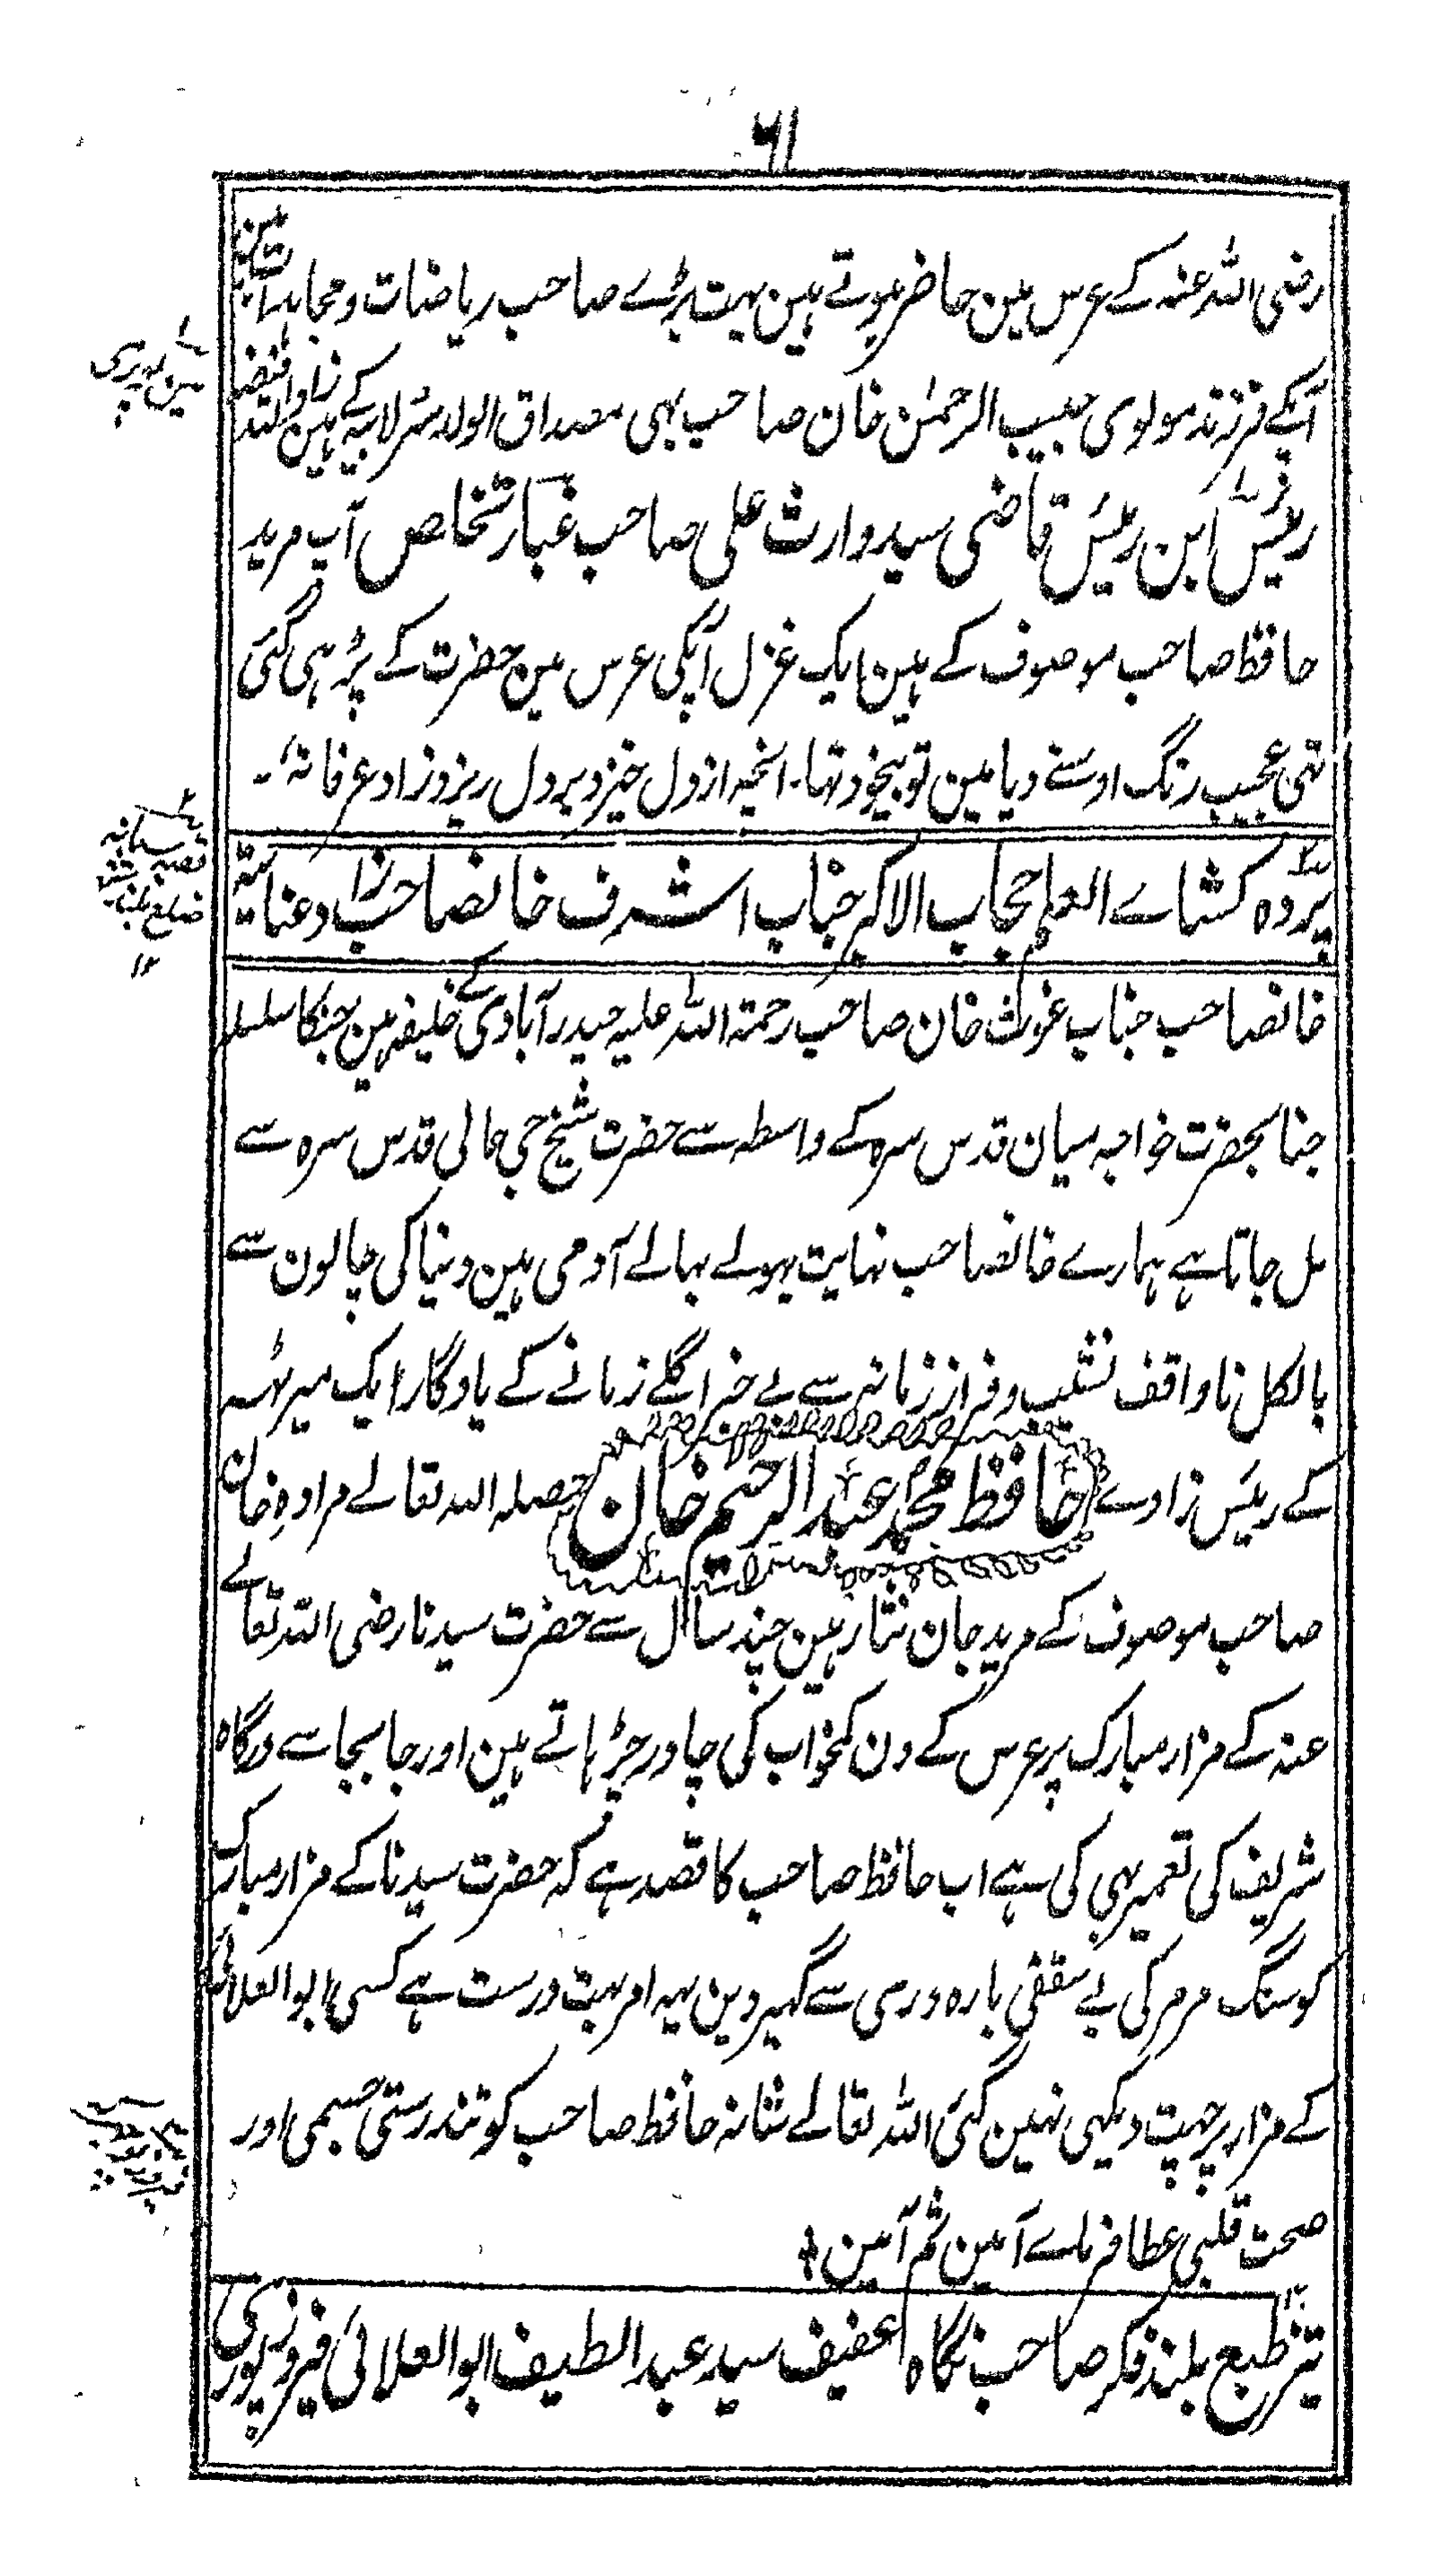 ۶۱
رضی اللہ عنہ کے عرس مین حاضر ہوتے ہین بہت بڑے صاحب ریاضات و مجاہدات ہین
آپکے فرزند مولوی حبیب الرحمٰن خان صاحب بہی مصداق الولد سر لابیہ کے ہین
رئیس ابن رئیس قاضی سید وارث علی صاحب غبار تخلص آپ مرید
حافظ صاحب موصوف کے ہین ایک غزل آپکی عرس مین حضرت کے پڑہی گئی
تہی عجیب رنگ اوسنے دیا مین تو بیخود تہا۔ انچہ از دل خیزد بر دل ریزد زاد عرفانہ۔
پردہ کشاے العلم حجاب الاکبر جناب اشرف خانصاحب زاد عنایتہ
خانصاحب جناب غوث خان صاحب رحمتہ اللہ علیہ حیدرآبادی کے خلیفہ ہین جنکا سلسلہ
جنابحضرت خواجہ میان قدس سرہ کے واسطہ سے حضرت شیخ جی حالی قدس سرہ سے
مل جاتا ہے ہمارے خانصاحب نہایت بہولے بہالے آدمی ہین دنیا کی چالون سے
بالکل ناواقف نشیب و فراز زمانہ سے بے خبر اگلے زمانے کے یادگار ایک میرٹہہ
کے رئیس زادے حافظ محمد عبدالرحیم خان حصلہ اللہ تعالے مرادہ خان
صاحب موصوف کے مرید جان نثار ہین چند سال سے حضرت سیدنا رضی اللہ تعالے
عنہ کے مزار مبارک پر عرس کے دن کمخواب کی چادر چڑہاتے ہین اور جابجا سے درگاہ
شریف کی تعمیر بہی کی ہے اب حافظ صاحب کا قصد ہے کہ حضرت سیدنا کے مزار مبارک
کو سنگ مرمر کی بے سقفی بارہ دری سے گہیر دین یہہ امر بہت درست ہے کسی ابوالعلائی
کے مزار پر چہت دیکہی نہین گئی اللہ تعالے شانہ حافظ صاحب کو تندرستی جسمی اور
صحت قلبی عطا فرماے آمین ثم آمین
تیز طبع بلند فکر صاحب نگاہ عفیف سید عبد الطیف ابوالعلائی فیروزپوری
مین پوری
قصبہ
ضلع
۱۲